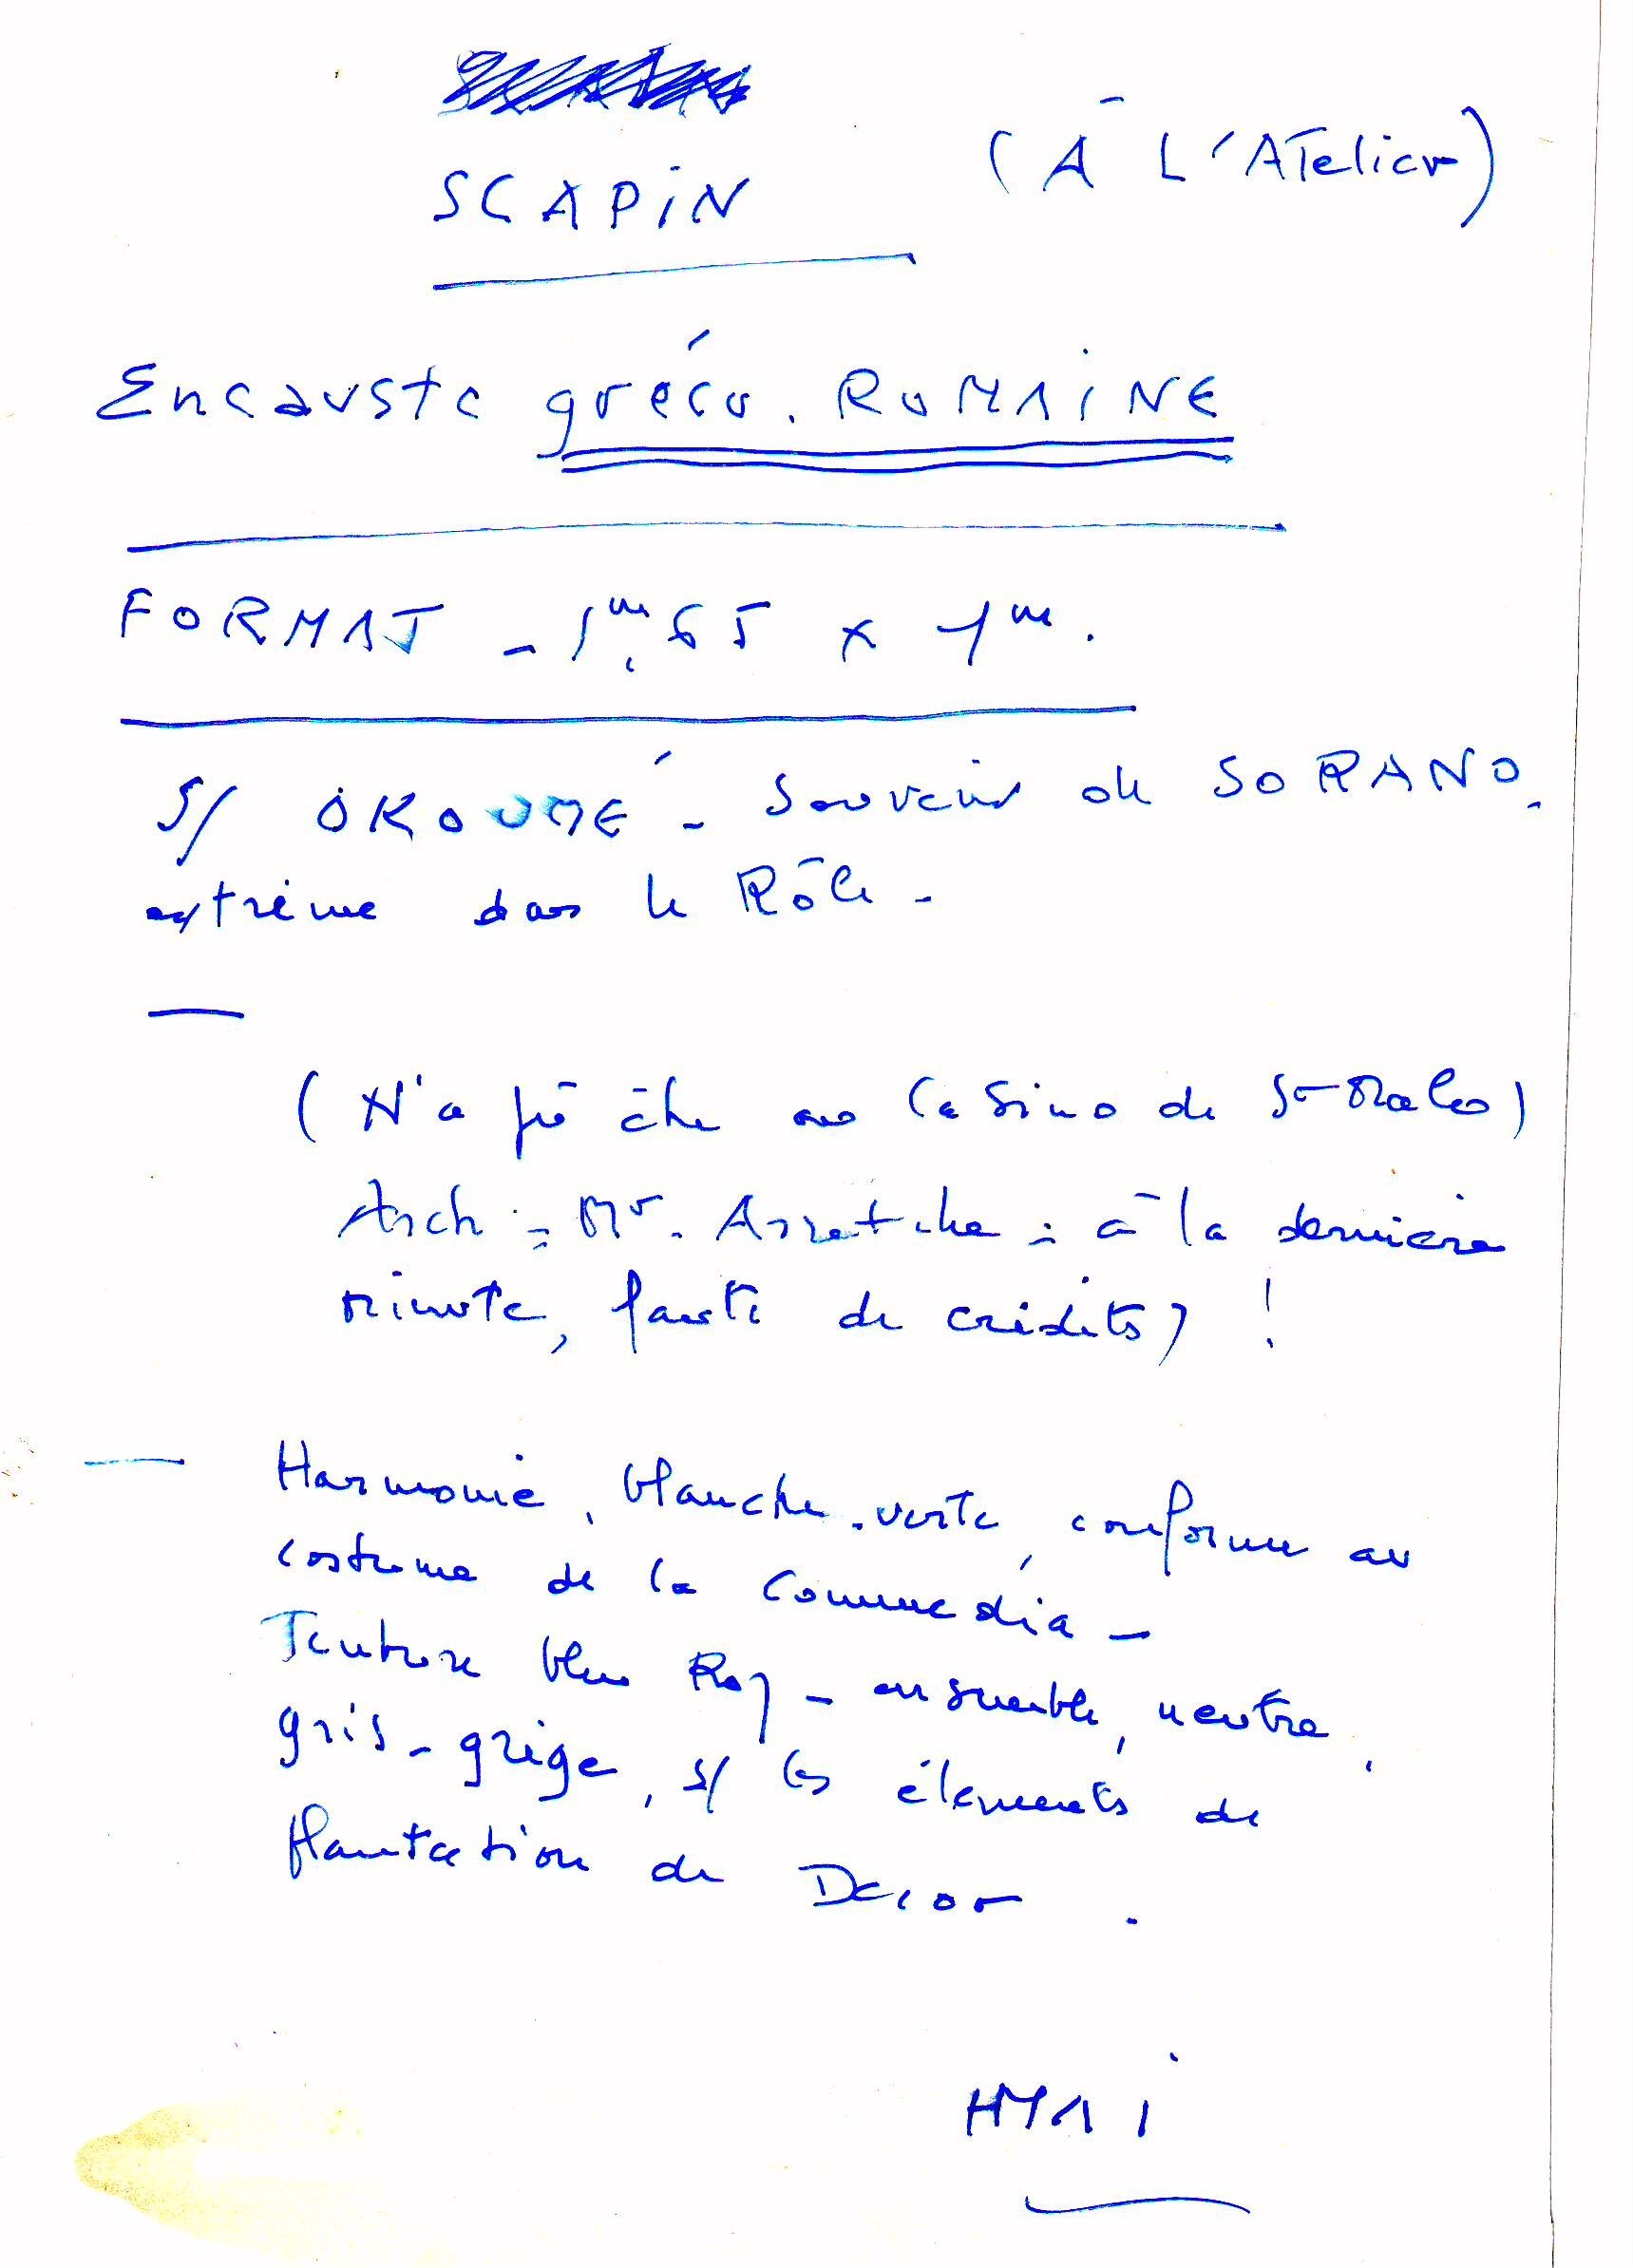 SCAPIN (À L'Atelier)
Encauste gréco. ROMAINE
FORMAT - 1m,65 x 1m.
S/ OKOUMÉ - Souvenir de SORANO.
extrême dans le Rôle -
(N'a pû être au Casino de St Malo)
Arch : Mr. Arretche : à la dernière
minute, faute de crédits) !
— Harmonie, blanche-verte, conforme au
costume de la Commedia -
Tenture bleu Roy - ensemble, neutre,
gris-grège, s/ les éléments de
plantation de Decor.